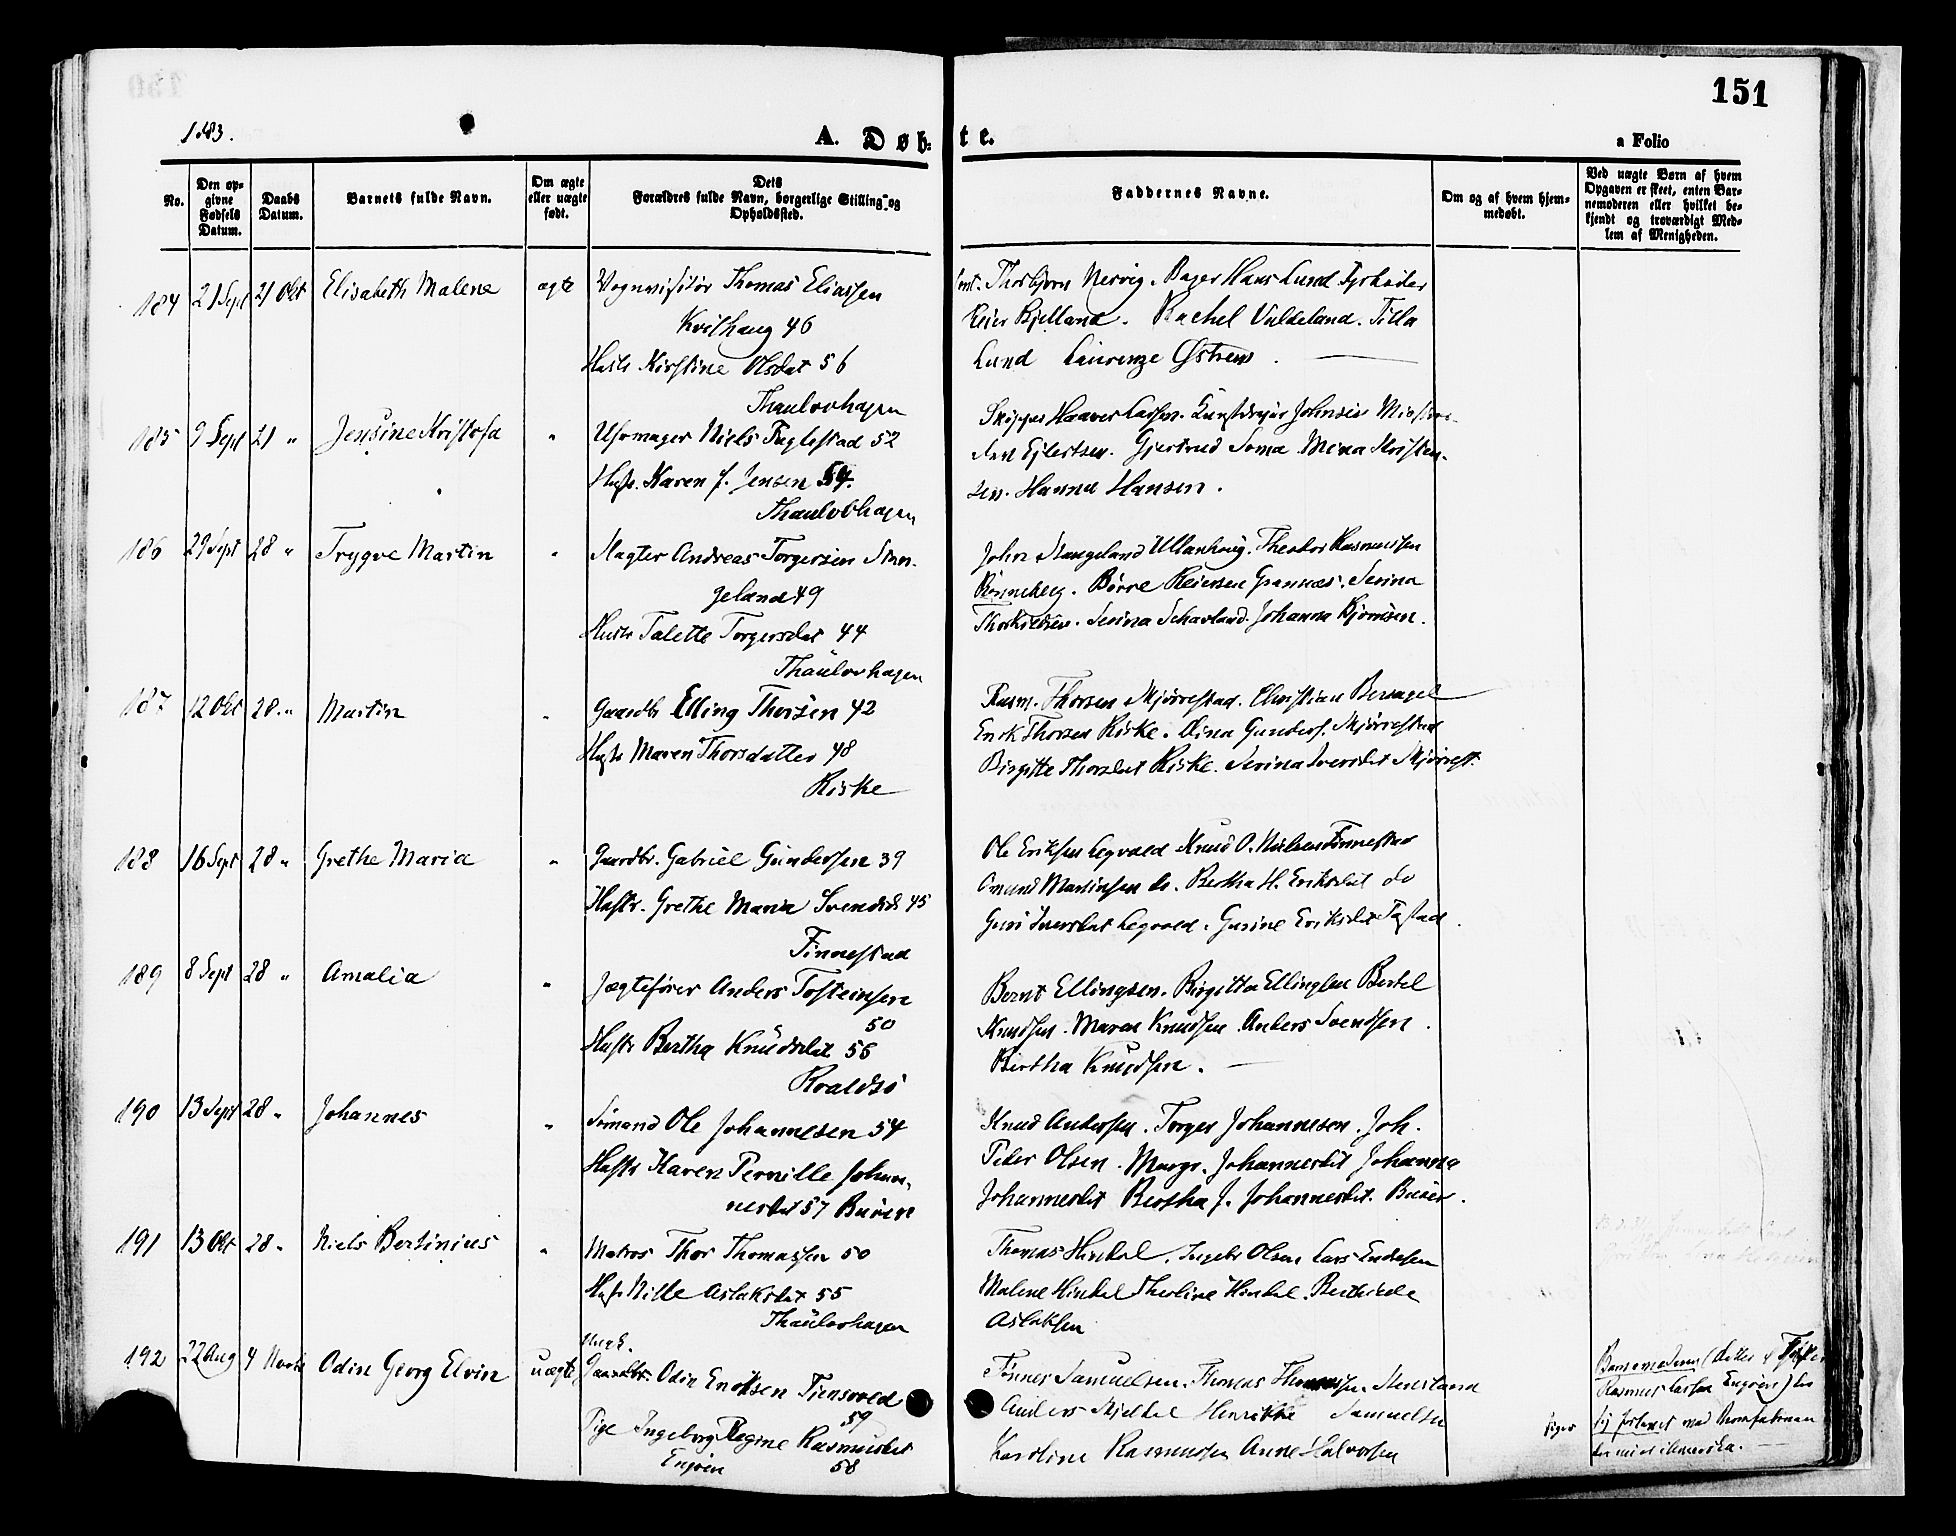 151
1883.
A. Døb-te.
a Folio
No.
Den opgivne Fødsels Datum.
Daabs Datum.
Barnets fulde Navn.
Om ægte eller uægte født.
Dets Forældres fulde Navn, borgerlige Stilling og Opholdssted.
Faddernes Navne.
Om og af hvem hjemmedøbt.
Ved uægte Børn af hvem Opgaven er skeet, enten Barnemoderen eller hvilket bekjendt og troværdigt Medlem af Menigheden.
184 21 Sept 21 Okt Elisabeth Malene ægte Vognvisitør Thomas Eliassen
Kvilhaug 46
Hustr Kirstine Olsdat 56
Thaulovhagen
Thorbjørn Nervig. Bager Hans Lund Fyrbøder
Reier Bjelland. Rachel Vuldeland. Tilla
Lund Laurenze Østrem.
185 9 Sept 21 " Jensine Kristofa " Uhrmager Niels Fuglestad 52
Hustr. Karen J. Jensen 54.
Thaulovhagen
Skipper Haaver Larsen. Johnsen
Ejlertsen. Gjertrud Soma. Mina Kristen-
sen. Hanna Hansen.
186 29 Sept 28 " Trygve Martin " Slagter Andreas Torgersen Stan-
geland 49
Hustr Talette Torgersdat 44
Thaulovhagen
John Stangeland Ullanhaug. Theodor Rasmussen
Rønneberg. Børre Reiersen Grannæs. Serina
Thorkildsen. Serina Schavland. Johanna Bjørnsen.
187 12 Okt 28 " Martin " Gaardbr Elling Thorsen 42
Hustr Maren Thorsdatter 48
Riske
Rasm. Thorsen Mjørrestad. Christian Bersagel
Enok Thorsen Riske. Dina Gunders. Mjørrestad
Birgitte Thorsdat Riske. Serina Iversdat Mjørrest.
188 16 Sept 28 " Grethe Maria " Gaardbr. Gabriel Gundersen 39
Hustr. Grethe Maria Svendsd. 45
Finnestad
Ole Eriksen Legvold Knud O. Nielsen Finnestad
Omund Martinsen do. Bertha H. Eriksdat do
Guri Iversdat Legvold. Gurine Eriksdat Tastad.
189 8 Sept 28 " Amalia " Jægtefører Anders Tosteinsen
50
Hustr Bertha Knudsdat 56
Roaldsø
Bernt Ellingsen. Birgitta Ellingsen Bertel
Knudsen. Maren Knudsen. Anders Svendsen.
Bertha Knudsen.
190 13 Sept 28 " Johannes " Sømand Ole Johannesen 54
Hustr Karen Pernille Johan-
nesdat 57 Buøen
Knud Andersen. Torger Johannesen. Joh.
Peder Olsen. Margr. Johannesdat Johanna
Johannesdat Bertha J. Johannesdat. Buøen.
191 13 Okt 28 " Niels Bertinius " Matros Thor Thomassen 50
Hustr Nille Aslaksdat 55
Thaulovhagen
Thomas Hinkel. Ingebr Olsen Lars Endresen
Malene Hinkel Theoline Hinkel. Berthilde
Aslaksen
192 22 Aug 4 Novbr Odin Georg Elvin uægte Ungk.
Gaardbr. Odin Enoksen Tjensvold
59
Pige Ingeborg Regine Rasmusdat
Engøen 58
Tønnes Samuelsen. Thomas Thomassen.
Anders Mjelkel Henrikke Samuelsen
Karoline Rasmussen Anne Halvorsen
siger
Barnemoderen (Datter af
Rasmus Larsen Engøen)
sig forlovet med Barnefaderen
der nu er i Amerika.